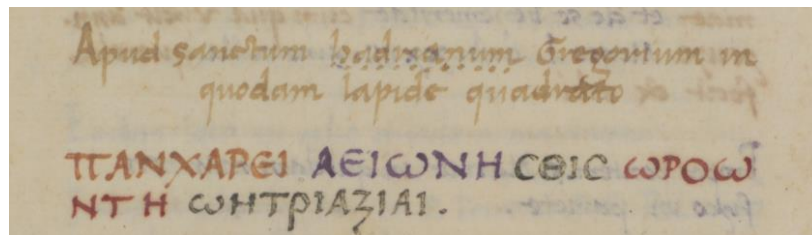 Apud sanctum hadrianum Gregorium in
quodam lapide quadrato
ΠΑΝΧΑΡΕΙ ΑΕΙωΝΗ CΘΙC ωΡΟω
ΝΤΗ ωΗΤΡΙΑΖΙΑΙ.